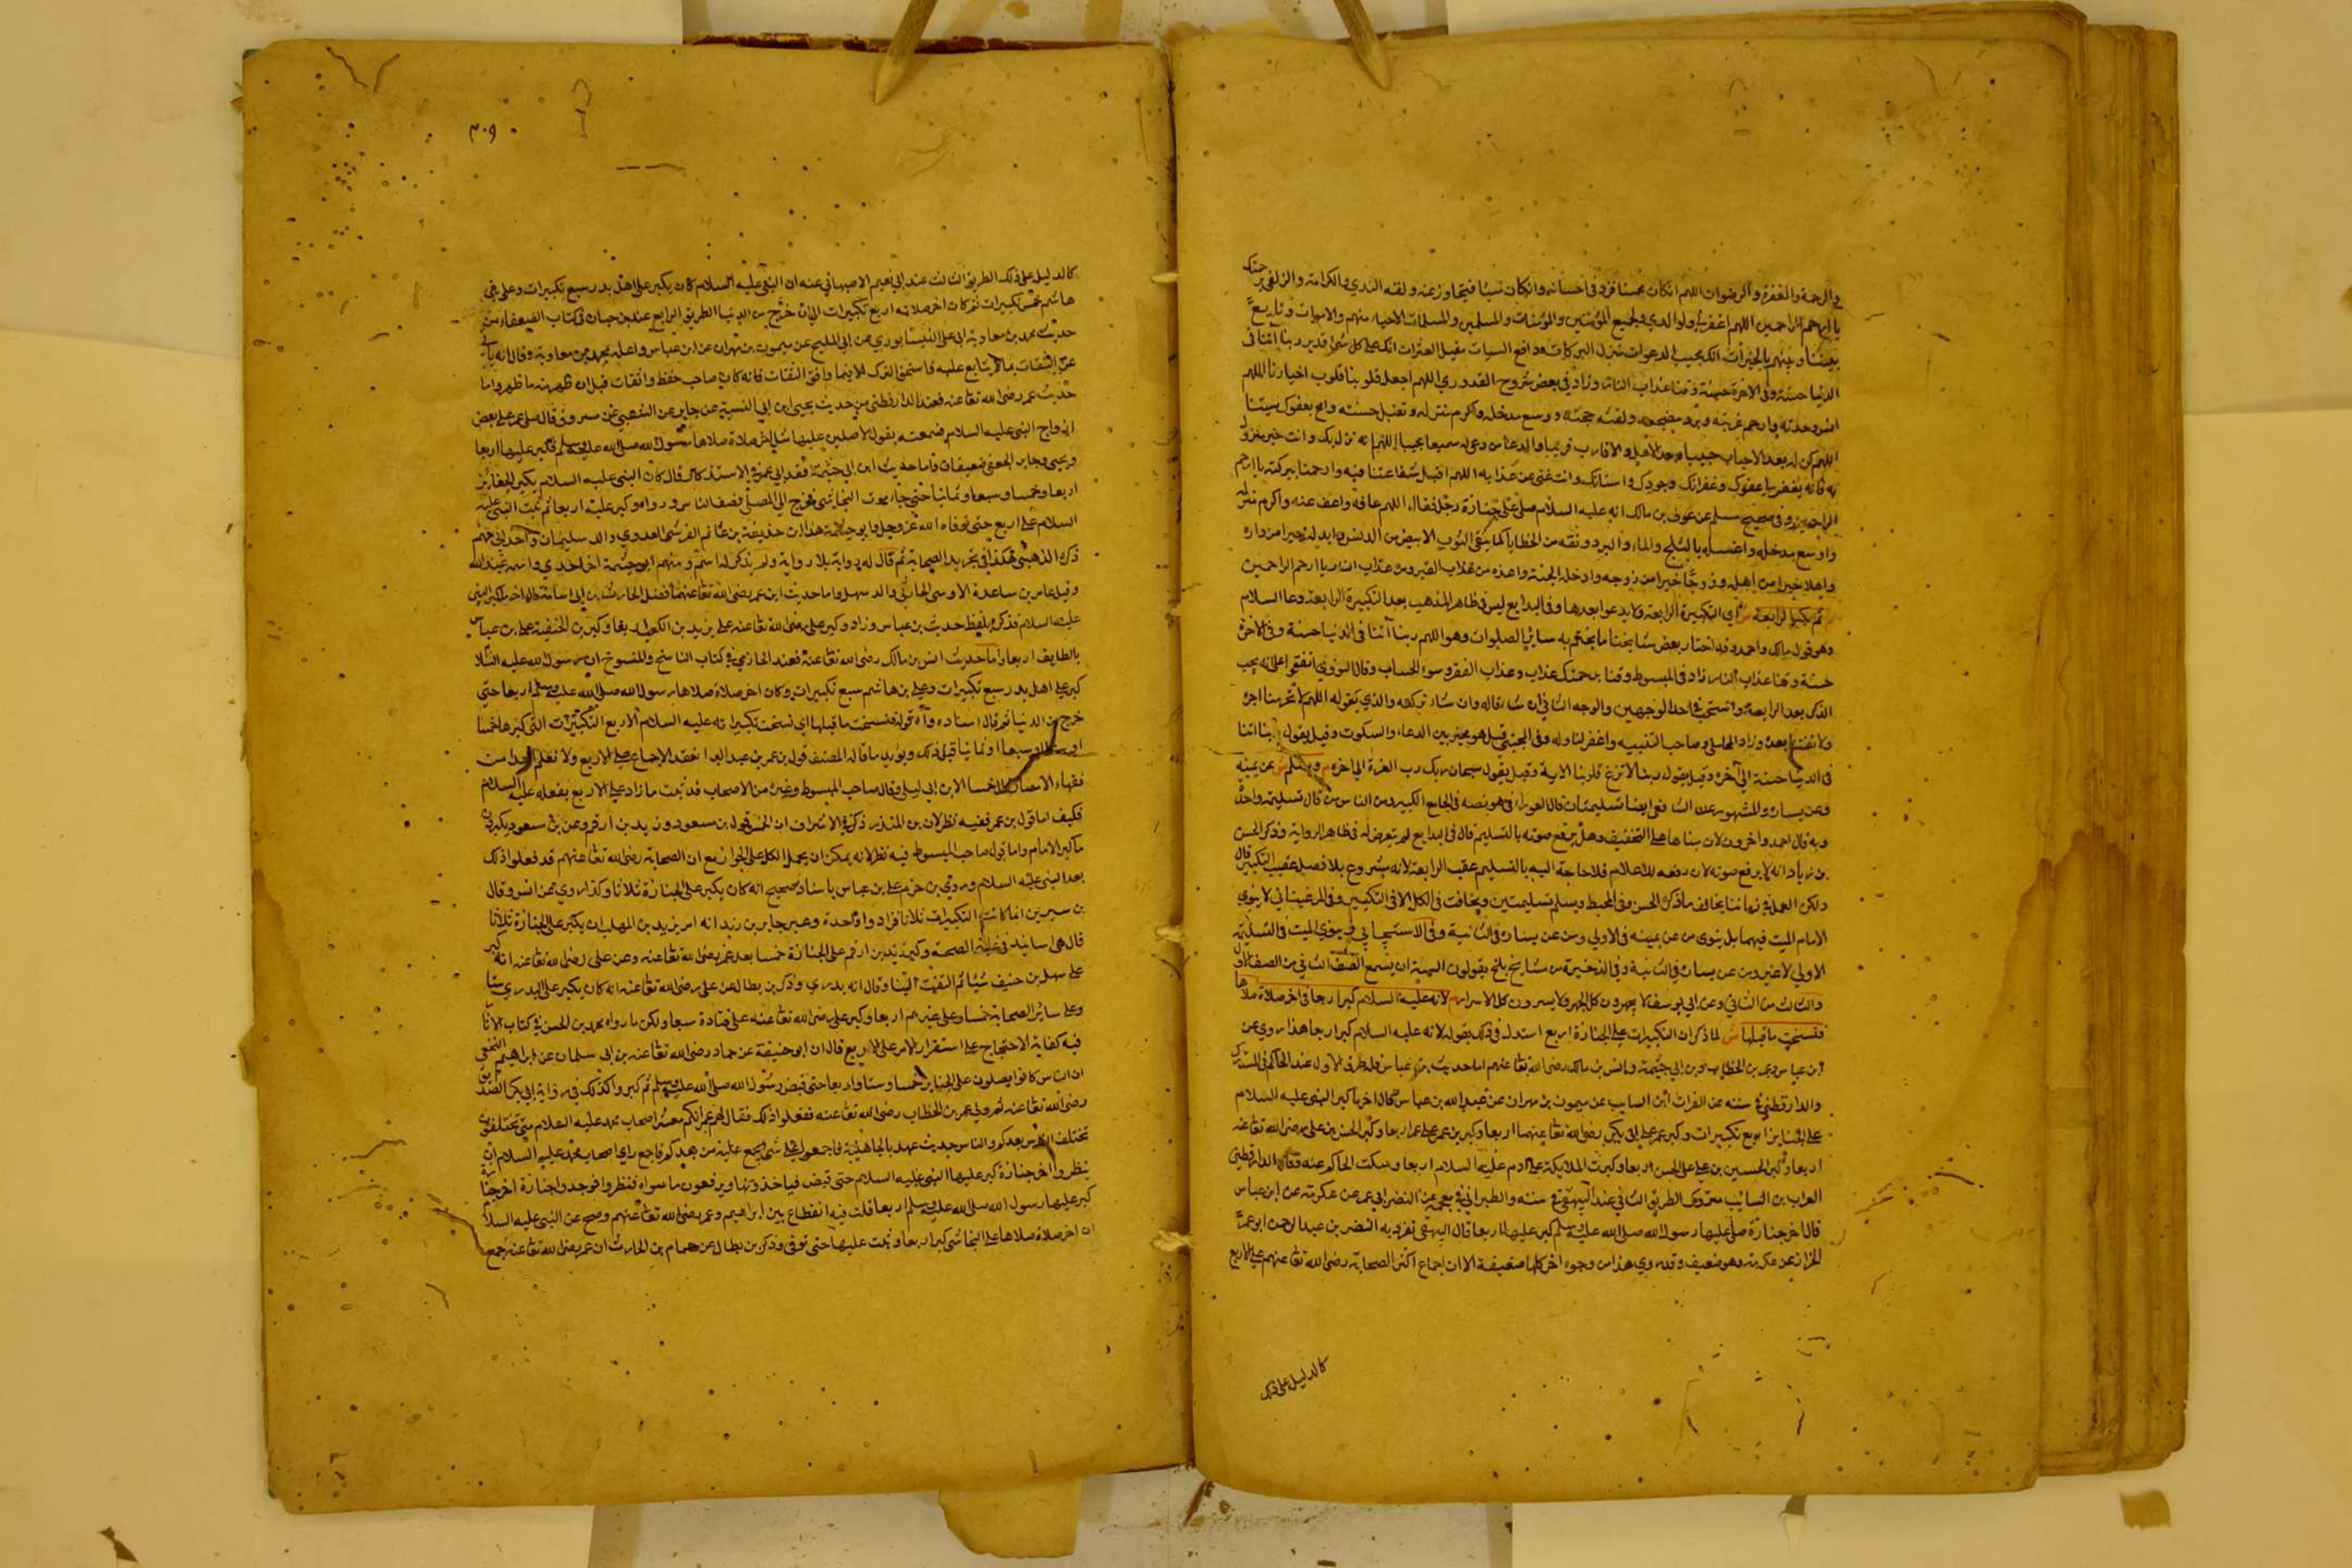 والرحمة والمغفرة والرضوان اللهم ان كان محسنا فزد في احسانه وان كان مسيئا فتجاوز عنه ولقه الندي والكرامة والزلفى
يا ارحم الراحمين اللهم اغفر لي ولوالدي ولجميع المؤمنين والمؤمنات والمسلمين والمسلمات الاحياء منهم والاموات وتابع
بيننا وبينهم بالخيرات انك مجيب الدعوات منزل البركات ودافع السيات مقيل العثرات انك على كل شئ قدير ربنا آتنا في
الدنيا حسنة وفي الاخرة حسنة وقنا عذاب النار وزاد في بعض شروح القدوري اللهم اجعل قلوبنا قلوب اخيارنا اللهم
انس وحدته وارحم غربته وبرد مضجعه ولقنه حجته ووسع مدخله واكرم منزله وتقبل حسنته وامح بعفوك سيئته
اللهم كن له بعد الاحباب حبيبا وبعد الاهل والاقارب قريبا ولدعاء من دعى له سميعا مجيبا اللهم انه نزل بك وانت خير منزول
به فانه يفتقر الى عفوك وغفرانك وجودك واحسانك وانت غني عن عذابه اللهم اقبل شفاعتنا فيه وارحمنا ببركته يا ارحم
الراحمين وفي صحيح مسلم عن عوف بن مالك انه عليه السلام صلى على جنازة رجل فقال اللهم عافه واعف عنه واكرم منزله
واوسع مدخله واغسله بالثلج والماء والبرد ونقه من الخطايا كما ينقى الثوب الابيض من الدنس وابدله خيرا من داره
واهلا خيرا من اهله وزوجا خيرا من زوجه وادخله الجنة واعذه من عذاب القبر ومن عذاب النار يا ارحم الراحمين
م ثم يكبر الرابعة ش اي التكبيرة الرابعة ولا يدعو بعدها وفي البدايع ليس في ظاهر المذهب بعد التكبيرة الرابعة دعا السلام
وهو قول مالك واحمد وقد اختار بعض مشايخنا ما يختم به سائر الصلوات وهو اللهم ربنا آتنا في الدنيا حسنة وفي الاخرة
حسنة وقنا عذاب النار زاد في المبسوط وقنا برحمتك عذاب وعذاب الفقر وسوء الحساب وقال النووي اتفقوا على انه يجب
الذكر بعد الرابعة واستحب في احد الوجهين والوجه الثاني ان شاء قاله وان شاء تركه والذي يقوله اللهم لا تحرمنا اجره
ولا تفتنا بعده وزاد المحاملي وصاحب التنبيه واغفر لنا وله وفي المجتبى قيل هو مخير بين الدعاء والسكوت وقيل يقول ربنا اتنا
في الدنيا حسنة الى آخره وقيل يقول ربنا لا تزغ قلوبنا الاية وقيل يقول سبحان ربك رب العزة الى اخره م ويسلم ش عن يمينه
وعن يساره والمشهور عند الشافعي ايضا تسليمتان قال الفوراني هو نصه في الجامع الكبير ومن الناس من قال تسليمة واحدة
وبه قال احمد واخرون لان مبناها على التخفيف وهل يرفع صوته بالتسليم قال في البدايع لم يتعرض له في ظاهر الرواية وذكر الحسن
بن زياد انه لا يرفع صوته لان رفعه للاعلام فلا حاجة اليه بالتسليم عقب الرابعة لانه مشروع بلا فصل عقيب التكبير قال
ولكن العمل في زماننا يخالف ما ذكره الحسن وفي المحيط ويسلم تسليمتين ويخافت في الكل الا في التكبير وفي المرغيناني لا ينوي
الامام الميت فيهما بل ينوي من عن يمينه في الاولى ومن عن يساره في الثانية وفي الاسبيجابي ينوي الميت في التسليمة
الاولى لا غير ومن عن يساره في الثانية وفي الذخيرة من مشايخ بلخ يقولون السنة ان يسمع الصف الثاني من الصف الاول
والثالث من الثاني وعن ابي يوسف لا يجهرون كل الجهر ولا يسرون كل الاسرار م لانه عليه السلام كبر اربعا في اخر صلاة صلاها
فنسخت ما قبلها ش لما ذكر ان التكبيرات على الجنازة اربع استدل في ذلك بقوله لانه عليه السلام كبر اربعا هذا روي عن
ابن عباس وعمر بن الخطاب وبن ابي حثمة وانس بن مالك رضى الله تعا عنهم اما حديث بن عباس فله طرق الاول عند الحاكم في المستدرك
والدارقطني في سننه عن الفرات ابن السايب عن ميمون بن مهران عن عبد الله بن عباس قال اخر ما كبر النبي عليه السلام
على الجنايز اربع تكبيرات وكبر عمر على ابي بكر رضى الله تعا عنهما اربعا وكبر بن عمر على عمر اربعا وكبر الحسن بن علي على رضى الله تعا عنه
اربعا وكبر الحسين بن علي على الحسن اربعا وكبرت الملايكة على ادم عليه السلام اربعا وسكت الحاكم عنه فقال الدارقطني
الفرات بن السايب متروك الطريق الثاني عند البيهقي في سننه والطبراني في معجمه عن النضر ابي عمر عن عكرمة عن ابن عباس
قال اخر جنازة صلى عليها رسول الله صلى الله عليه وسلم كبر عليها اربعا قال البيهقي تفرد به النضر بن عبد الرحمن ابو عمر
الخزاز عن عكرمة وهو ضعيف وقد روي هذا من وجوه اخر كلها ضعيفة الا ان اجماع اكثر الصحابة رضى الله تعا عنهم على الاربع
كالدليل على ذلك
٣٠٩
كالدليل على ذلك الطريق الثالث عند ابي نعيم الاصبهاني عنه ان النبي عليه السلام كان يكبر على اهل بدر سبع تكبيرات وعلى بني
هاشم خمس تكبيرات ثم كان اخر صلاته اربع تكبيرات الى ان خرج من الدنيا الطريق الرابع عند بن حبان في كتاب الضعفاء من
حديث محمد بن معاوية ابي علي النيسابوري عن ابي المليح عن ميمون بن مهران عن ابن عباس واعله بمحمد بن معاوية وقال انه يأتي
عن الثقات بما لا يتابع عليه فاستحق الترك الا فيما وافق الثقات فانه كان صاحب حفظ واتقان قبل ان ظهر منه ما ظهر واما
حديث عمر رضى الله تعا عنه فعند الدارقطني من حديث يحيى ابن ابي انيسة عن جابر عن الشعبي عن مسروق قال صلى عمر على بعض
ازواج النبي عليه السلام فسمعته يقول لاصلين عليها مثل اخر صلاة صلاها رسول الله صلى الله عليه وسلم فكبر عليها اربعا
ويحيى وجابر الجعفي ضعيفان واما حديث ابن ابي حثمة فعند ابي عمر في الاستذكار قال كان النبي عليه السلام يكبر على الجنايز
اربعا وخمسا وسبعا وثمانيا حتى جاء موت النجاشي فخرج الى المصلى فصف الناس وراءه وكبر عليه اربعا ثم ثبت النبي عليه
السلام على اربع حتى توفاه الله عز وجل وابو حثمة هذا ابن حذيفة بن غانم القرشي العدوي والد سليمان واحد ابني جهم
ذكره الذهبي هكذا في تجريد الصحابة ثم قال له رواية بلا رواية ولم يذكر له اسم ومنهم ابو حثمة اخر احدي واسمه عبد الله
وقيل عامر بن ساعدة الاوسي الحارثي والد سهل واما حديث ابن عمر رضى الله تعا عنهما فعند الحارث بن ابي اسامة قال اخر ما كبر النبي
عليه السلام فذكره بلفظ حديث بن عباس وزاد وكبر علي رضى الله تعا عنه على يزيد بن المكفف اربعا وكبر بن الحنفية على بن عباس
بالطايف اربعا واما حديث انس بن مالك رضى الله تعا عنه فعند الحازمي في كتاب الناسخ والمنسوخ ان رسول الله عليه السلام
كبر على اهل بدر سبع تكبيرات وعلى بن هاشم سبع تكبيرات وكان اخر صلاة صلاها رسول الله صلى الله عليه وسلم اربعا حتى
خرج من الدنيا ثم قال اسناده واه قوله فنسخت ما قبلها اي نسخت تكبيراته عليه السلام الاربع التكبيرات التي كبرها خمسا
او سبعا او ثمانيا قبل ذلك ويؤيد ما قاله المصنف قول بن عمر بن عبد البر انعقد الاجماع على الاربع ولا نعلم احدا من
فقهاء الامصار قال خمسا الا بن ابي ليلى وقال صاحب المبسوط وغيره من الاصحاب قد ثبت ما زاد على الاربع بفعله عليه السلام
فكيف اما قول بن عمر ففيه نظر لان بن المنذر ذكر في الاشراف ان الخمس قول بن مسعود وزيد بن ارقم وعن بن مسعود يكبر
ما كبر الامام واما قول صاحب المبسوط فيه نظر لانه يمكن ان يحمل الكل على الجواز مع ان الصحابة رضى الله تعا عنهم قد فعلوا ذلك
بعد النبي عليه السلام وروى بن حزم على بن عباس باسناد صحيح انه كان يكبر على الجنازة ثلاثا وكذا روي عن انس وقال
بن سيرين انما كانت التكبيرات ثلاثا فزادوا واحدة وعن جابر بن زيد انه امر يزيد بن المهلب ان يكبر على الجنازة ثلاثا
قال هي اسانيد في غاية الصحة وكبر زيد بن ارقم على الجنازة خمسا بعد عمر رضى الله تعا عنه وعن علي رضى الله تعا عنه انه كبر
على سهل بن حنيف ستا ثم التفت الينا وقال انه بدري وذكر بن بطال عن علي رضى الله تعا عنه انه كان يكبر على البدري ستا
وعلى سائر الصحابة خمسا وعلى غيرهم اربعا وكبر علي رضى الله تعا عنه على قتادة سبعا ولكن ما رواه محمد بن الحسن في كتاب الاثار
فيه كفاية الاحتجاج على استقرار الامر على الاربع قال ان ابو حنيفة عن حماد رضى الله تعا عنه بن ابي سلمان عن ابراهيم النخعي
ان الناس كانوا يصلون على الجنايز خمسا وستا واربعا حتى قبض رسول الله صلى الله عليه وسلم ثم كبروا كذلك في رواية ابي بكر الصديق
رضى الله تعا عنه ثم ولي عمر بن الخطاب رضى الله تعا عنه ففعلوا ذلك فقال لهم عمر انكم معشر اصحاب محمد عليه السلام متى تختلفون
تختلف الناس بعدكم والناس حديث عهد بالجاهلية فاجمعوا على شئ يجمع عليه من بعدكم فاجمع راي اصحاب محمد عليه السلام ان
ينظروا اخر جنازة كبر عليها النبي عليه السلام حتى قبض فياخذونها ويرفعون ما سواه فنظروا فوجدوا جنازة اخر جنازة
كبر عليها رسول الله صلى الله عليه وسلم اربعا قلت فيه انقطاع بين ابراهيم وعمر رضى الله تعا عنهم وصح عن النبي عليه السلام
ان اخر صلاة صلاها على النجاشي كبر اربعا وثبت عليها حتى توفى وذكر بن بطال عن همام بن الحارث ان عمر رضى الله تعا عنه جمع